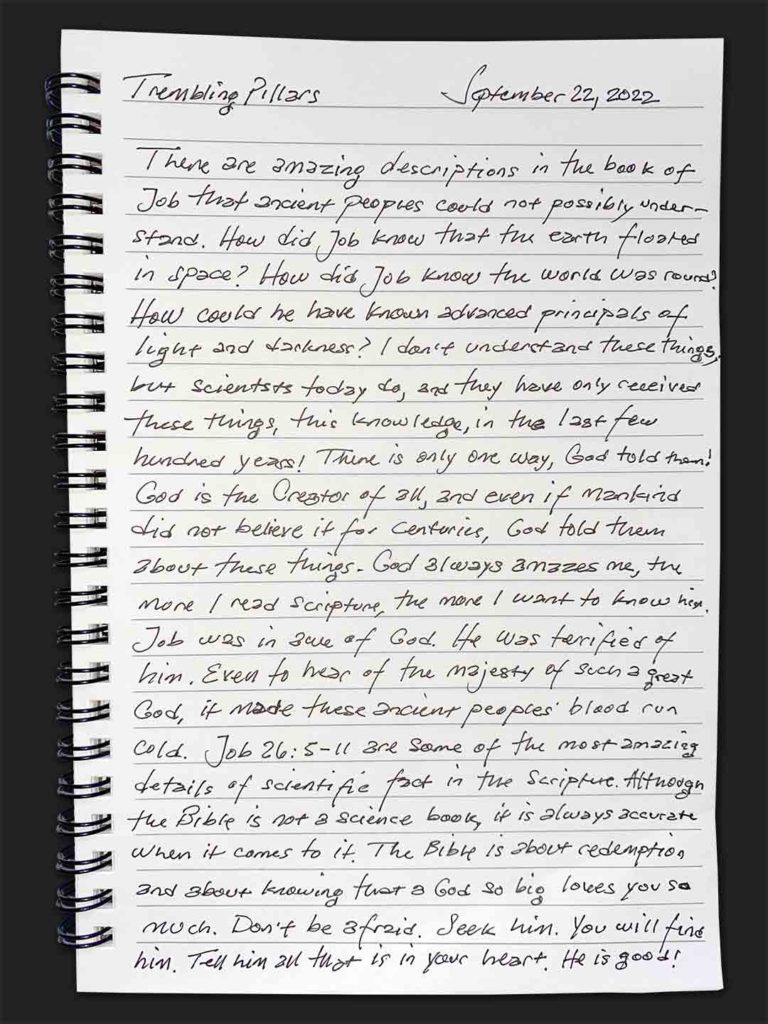 Trembling Pillars September 22, 2022
There are amazing descriptions in the book of
Job that ancient peoples could not possibly under-
stand. How did Job know that the earth floated
in space? How did Job know the world was round?
How could he have known advanced principals of
light and darkness? I don't understand these things,
but scientists today do, and they have only received
these things, this knowledge, in the last few
hundred years! There is only one way, God told them!
God is the Creator of all, and even if mankind
did not believe it for centuries, God told them
about these things. God always amazes me, the
more I read scripture, the more I want to know him.
Job was in awe of God. He was terrified of
him. Even to hear of the majesty of such a great
God, it made these ancient peoples' blood run
cold. Job 26:5-11 are some of the most amazing
details of scientific fact in the Scripture. Although
the Bible is not a science book, it is always accurate
when it comes to it. The Bible is about redemption
and about knowing that a God so big loves you so
much. Don't be afraid. Seek him. You will find
him. Tell him all that is in your heart. He is good!